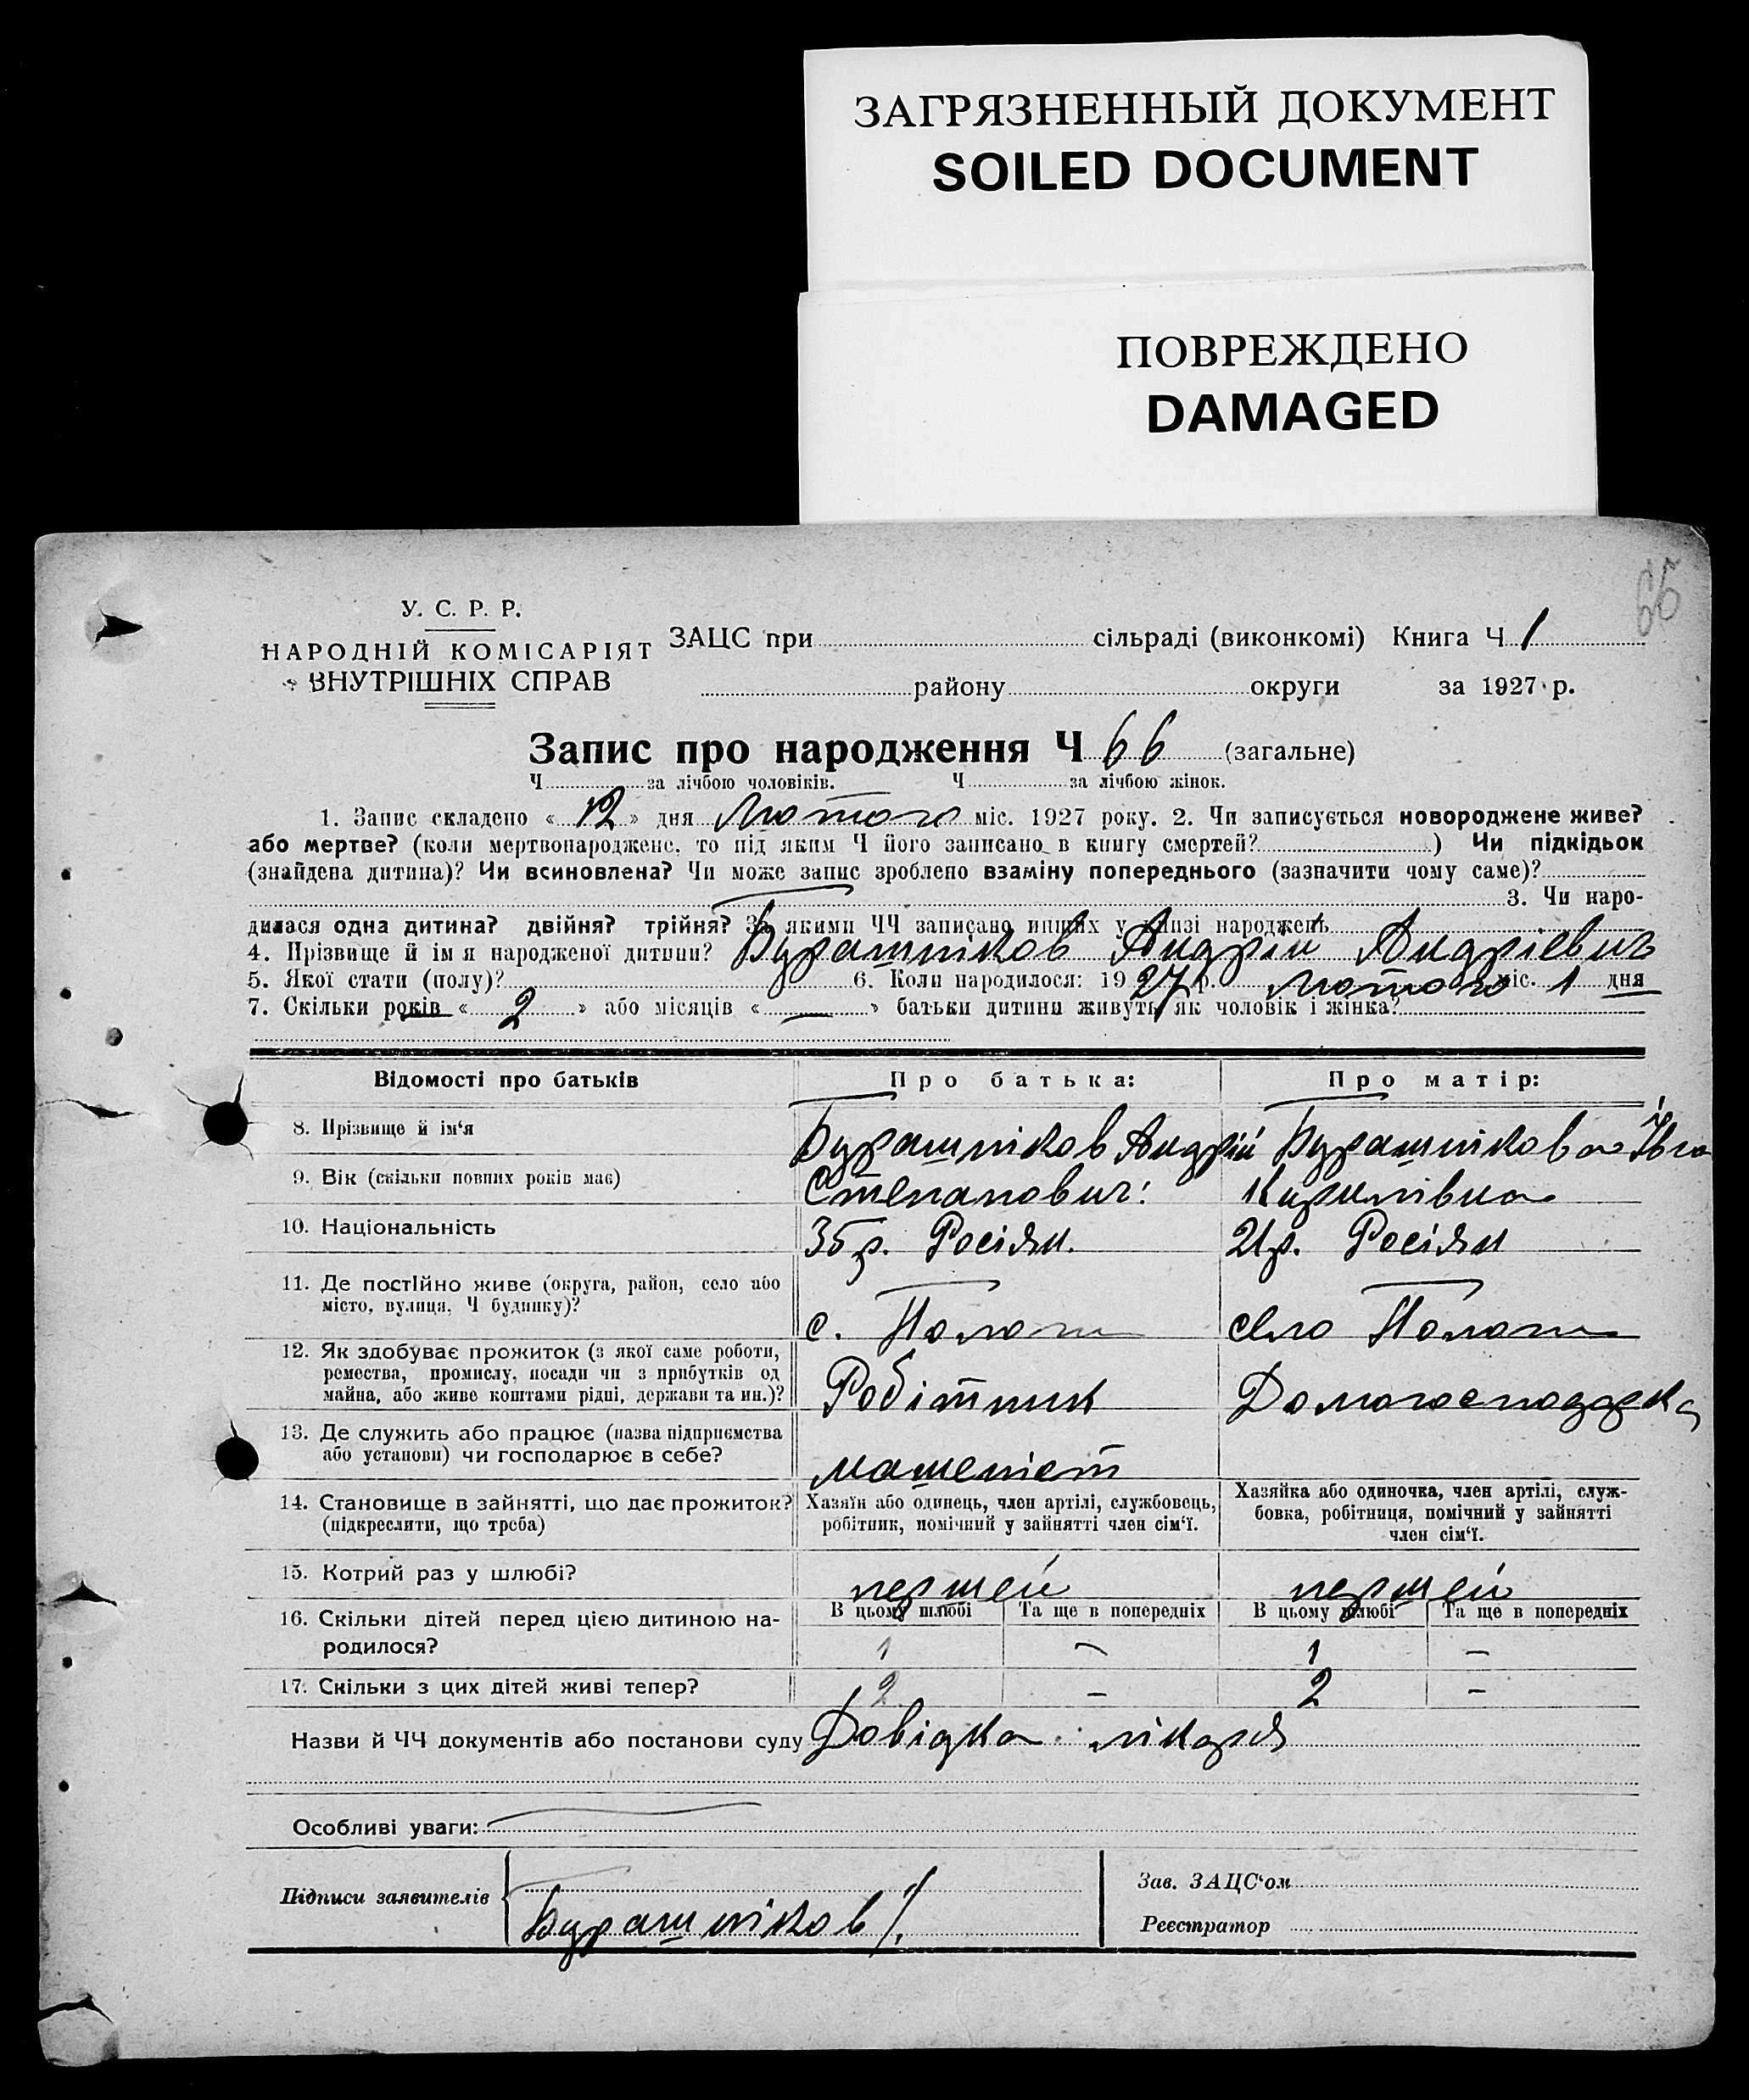 ЗАГРЯЗНЕННЫЙ ДОКУМЕНТ
SOILED DOCUMENT
ПОВРЕЖДЕНО
DAMAGED
66
У. С. Р. Р.
НАРОДНІЙ КОМІСАРІЯТ
ВНУТРІШНІХ СПРАВ
ЗАЦС при сільраді (виконкомі) Книга Ч 1
району округи за 1927 р.
Запис про народження Ч 66 (загальне)
Ч за лічбою чоловіків. Ч за лічбою жінок.
1. Запис складено « 12 » дня Лютого міс. 1927 року. 2. Чи записується новороджене живе?
або мертве? (коли мертвонароджене, то під яким Ч його записано в книгу смертей? ) Чи підкідьок
(знайдена дитина)? Чи всиновлена? Чи може запис зроблено взаміну попереднього (зазначити чому саме)?
3. Чи наро-
дилася одна дитина? двійня? трійня? За якими ЧЧ записано инших у книзі народжень
4. Прізвище й ім я народженої дитини? Бурашніков Андрій Андріевич
5. Якої стати (полу)? 6. Коли народилося: 1927 р. Лютого міс. 1 дня
7. Скільки років « 2 » або місяців « — » батьки дитини живуть як чоловік і жінка?
Відомості про батьків Про батька: Про матір:
8. Прізвище й ім‘я Бурашніков Андрій Бурашнікова
9. Вік (скільки повних років має) Степанович. Кирилівна
10. Національність 35 р. Росіян. 21 р. Росіян
11. Де постійно живе (округа, район, село або
місто, вулиця, Ч будинку)? с. Пологи село Пологи
12. Як здобуває прожиток (з якої саме роботи,
ремества, промислу, посади чи з прибутків од
майна, або живе коштами рідні, держави та ин.)? Робітник Домогосподарка
13. Де служить або працює (назва підприємства
або установи) чи господарює в себе? машеніст
14. Становище в зайнятті, що дає прожиток? Хазяїн або одинець, член артілі, службовець, Хазяйка або одиночка, член артілі, служ-
(підкреслити, що треба) робітник, помічний у зайнятті член сім‘ї. бовка, робітниця, помічний у зайнятті
член сім‘ї.
15. Котрий раз у шлюбі? першей першей
16. Скільки дітей перед цією дитиною на- В цьому шлюбі Та ще в попередніх В цьому шлюбі Та ще в попередніх
родилося? 1 — 1 —
17. Скільки з цих дітей живі тепер? 2 — 2 —
Назви й ЧЧ документів або постанови суду Довідка лікаря
Особливі уваги:
Підписи заявителів Бурашніков
Зав. ЗАЦС‘ом
Реєстратор